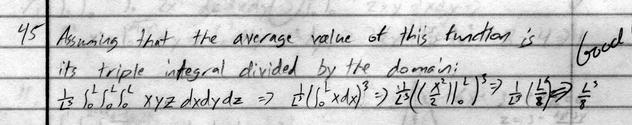 45 Assuming that the average value of this function is
its triple integral divided by the domain:
1/L³ ∫₀ᴸ∫₀ᴸ∫₀ᴸ xyz dxdydz => 1/L³(∫₀ᴸ xdx)³ => 1/L³((x²/2)|₀ᴸ)³ => 1/L³(L⁶/8) => L³/8
Good!